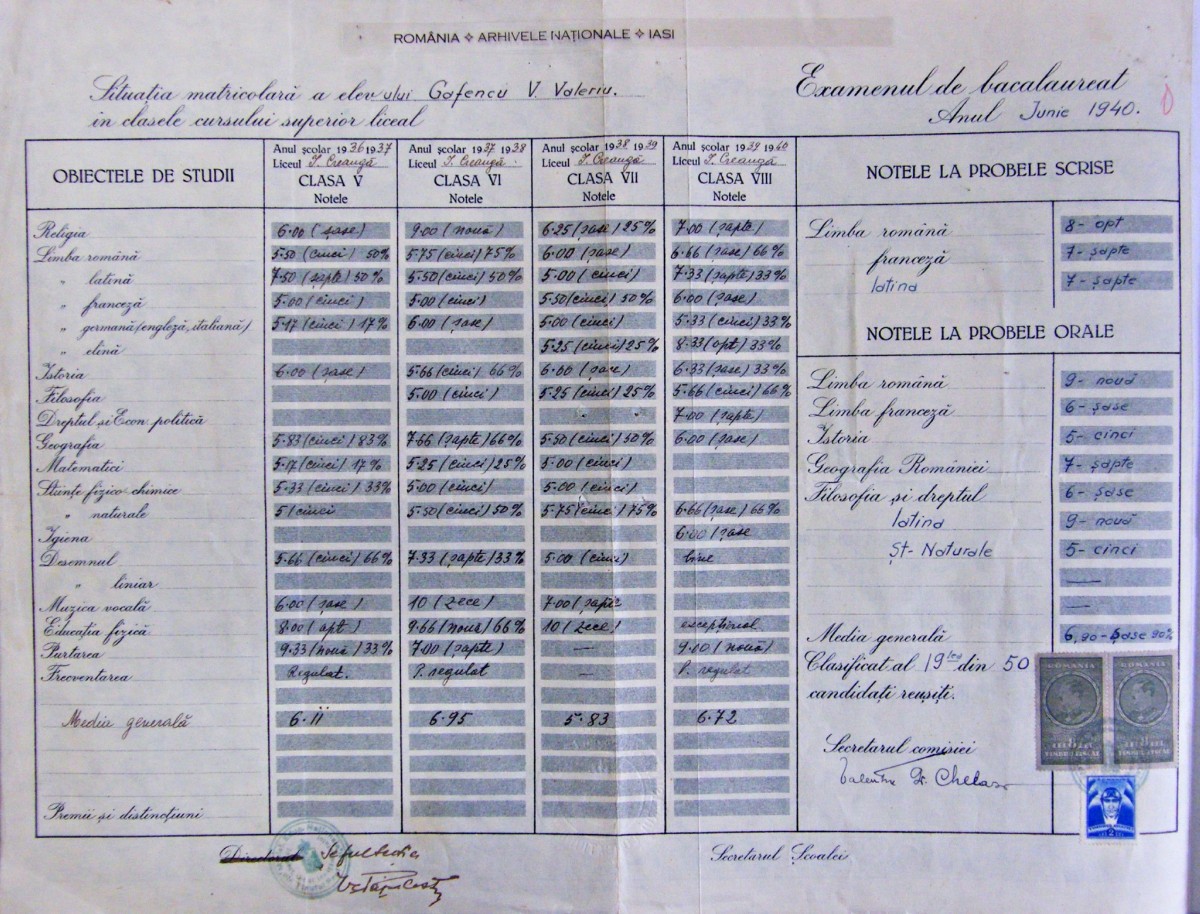 ROMÂNIA ✧ ARHIVELE NAȚIONALE ✧ IASI
Situația matricolară a elevului Gafencu V. Valeriu.
în clasele cursului superior liceal
Examenul de bacalaureat
Anul Junie 1940.
OBIECTELE DE STUDII
Anul școlar 1936 1937
Liceul I. Creangă
CLASA V
Notele
Anul școlar 1937 1938
Liceul I. Creangă
CLASA VI
Notele
Anul școlar 1938 1939
Liceul I. Creangă
CLASA VII
Notele
Anul școlar 1939 1940
Liceul I. Creangă
CLASA VIII
Notele
Religia 6·00 (șase) 9·00 (nouă) 6·25 (șase) 25% 7·00 (șapte)
Limba română 5·50 (cinci) 50% 5·75 (cinci) 75% 6·00 (șase) 6·66 (șase) 66%
„ latină 7·50 (șapte) 50% 5·50 (cinci) 50% 5·00 (cinci) 7·33 (șapte) 33%
„ franceză 5·00 (cinci) 5·00 (cinci) 5·50 (cinci) 50% 6·00 (șase)
„ germană (engleză, italiană) 5·17 (cinci) 17% 6·00 (șase) 5·00 (cinci) 5·33 (cinci) 33%
„ elină 5·25 (cinci) 25% 8·33 (opt) 33%
Istoria 6·00 (șase) 5·66 (cinci) 66% 6·00 (șase) 6·33 (șase) 33%
Filosofia 5·00 (cinci) 5·25 (cinci) 25% 5·66 (cinci) 66%
Dreptul și Econ. politică 7·00 (șapte)
Geografia 5·83 (cinci) 83% 7·66 (șapte) 66% 5·50 (cinci) 50% 6·00 (șase)
Matematici 5·17 (cinci) 17% 5·25 (cinci) 25% 5·00 (cinci)
Științe fizico-chimice 5·33 (cinci) 33% 5·00 (cinci) 5·00 (cinci)
„ naturale 5 (cinci 5·50 (cinci) 50% 5·75 (cinci) 75% 6·66 (șase) 66%
Igiena 6·00 (șase
Desemnul 5·66 (cinci) 66% 7·33 (șapte) 33% 5·00 (cinci) bine
„ liniar
Muzica vocală 6·00 (șase) 10 (zece) 7·00 (șapte
Educația fizică 8·00 (opt) 9·66 (nouă) 66% 10 (zece) excepțional
Purtarea 9·33 (nouă) 33% 7·00 (șapte) — 9·00 (nouă)
Frecventarea Regulat. P. regulat — P. regulat
Medie generală 6·11 6·95 5·83 6·72
Premii și distincțiuni
NOTELE LA PROBELE SCRISE
Limba română 8- opt
franceză 7- șapte
latina 7- șapte
NOTELE LA PROBELE ORALE
Limba română 9- nouă
Limba franceză 6- șase
Istoria 5- cinci
Geografia României 7- șapte
Filosofia și dreptul 6- șase
latina 9- nouă
Șt- Naturale 5- cinci
—
—
Media generală 6,90- șase 90%
Clasificat al 19lea din 50
candidați reușiți.
Secretarul comisiei
ROMANIA ROMANIA
TIMBRU FISCAL TIMBRU FISCAL
2
Directorul Șeful secției
Secretarul Școalei